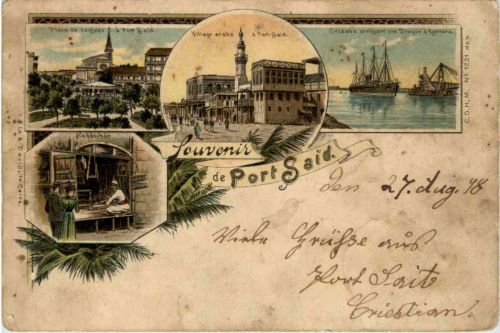 Place de Lesseps à Port Saïd.
Village arabe à Port-Saïd.
croisant une Drague à Kantara.
C.O.H.M. Nº 1231 dep.
Souvenir
de Port Saïd.
den 27. Aug. 98
Viele Grüsse aus
Port Sait
Cristian.